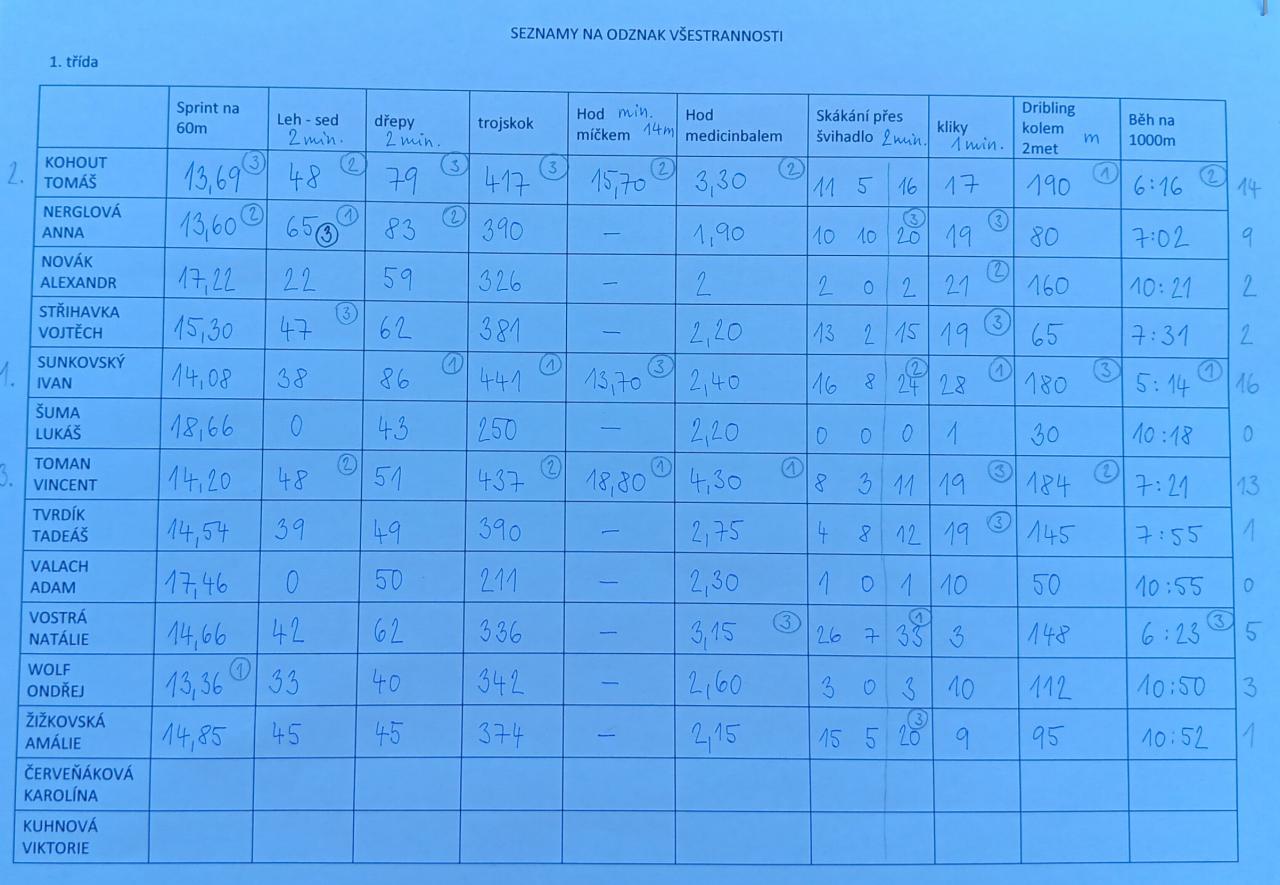 SEZNAMY NA ODZNAK VŠESTRANNOSTI
1. třída
Sprint na 60m Leh - sed 2 min. dřepy 2 min. trojskok Hod míčkem min. 14m Hod medicinbalem Skákání přes švihadlo 2 min. kliky 1 min. Dribling kolem 2met m Běh na 1000m
2. KOHOUT TOMÁŠ 13,69 3 48 2 79 3 417 3 15,70 2 3,30 2 11 5 16 17 190 1 6:16 2 14
NERGLOVÁ ANNA 13,60 2 65 3 1 83 2 390 – 1,90 10 10 20 3 19 3 80 7:02 9
NOVÁK ALEXANDR 17,22 22 59 326 – 2 2 0 2 21 2 160 10:21 2
STŘIHAVKA VOJTĚCH 15,30 47 3 62 381 – 2,20 13 2 15 19 3 65 7:31 2
1. SUNKOVSKÝ IVAN 14,08 38 86 1 441 1 13,70 3 2,40 16 8 24 2 28 1 180 3 5:14 1 16
ŠUMA LUKÁŠ 18,66 0 43 250 – 2,20 0 0 0 1 30 10:18 0
3. TOMAN VINCENT 14,20 48 2 51 437 2 18,80 1 4,30 1 8 3 11 19 3 184 2 7:21 13
TVRDÍK TADEÁŠ 14,54 39 49 390 – 2,75 4 8 12 19 3 145 7:55 1
VALACH ADAM 17,46 0 50 211 – 2,30 1 0 1 10 50 10:55 0
VOSTRÁ NATÁLIE 14,66 42 62 336 – 3,15 3 26 7 33 1 3 148 6:23 3 5
WOLF ONDŘEJ 13,36 1 33 40 342 – 2,60 3 0 3 10 112 10:50 3
ŽIŽKOVSKÁ AMÁLIE 14,85 45 45 374 – 2,15 15 5 20 3 9 95 10:52 1
ČERVEŇÁKOVÁ KAROLÍNA
KUHNOVÁ VIKTORIE